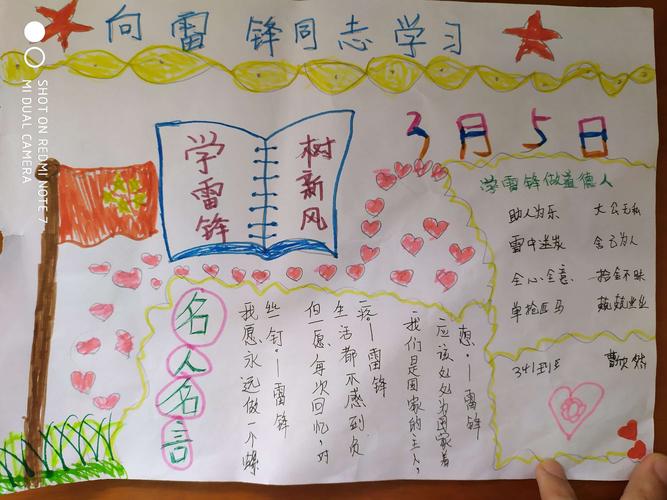 向雷锋同志学习
SHOT ON REDMI NOTE 7
MI DUAL CAMERA
学雷锋
树新风
3月5日
名人名言
我愿永远做一个螺
些钉。—雷锋
但愿每次回忆，对
生活都不感到负
疚。—雷锋
我们是国家的主人，
应该处处为国家着
想。—雷锋
学雷锋做道德人
助人为乐 大公无私
雪中送炭 舍己为人
全心全意 拾金不昧
单抢匹马 兢兢业业
341班 曹欣然